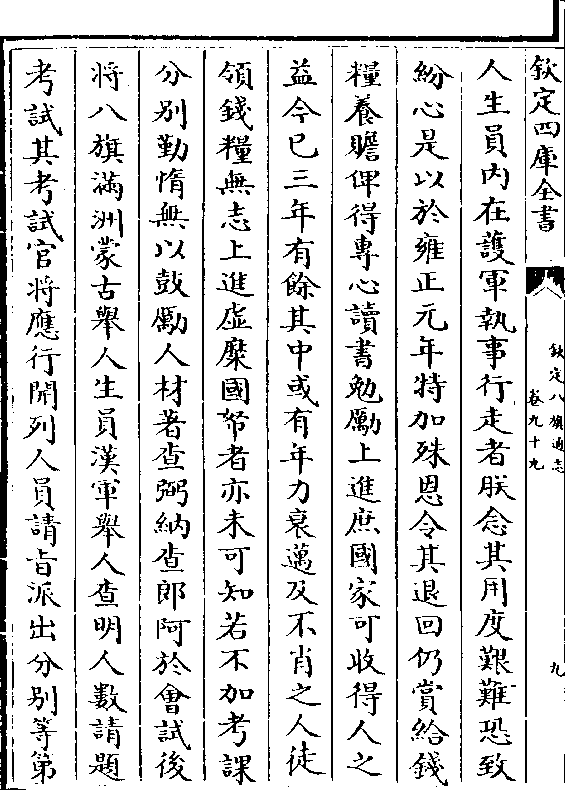 欽定四庫全書
欽定八旗通志
卷九十九
九
人生員內在護軍執事行走者朕念其用度艱難恐致
紛心是以於雍正元年特加殊恩令其退回仍賞給錢
糧養贍俾得專心讀書勉勵上進庶國家可收得人之
益今已三年有餘其中或有年力衰邁及不肖之人徒
領錢糧無志上進虛糜國帑者亦未可知若不加考課
分別勤惰無以鼓勵人材著查弼納查郎阿於會試後
將八旗滿洲蒙古舉人生員漢軍舉人查明人數請題
考試其考試官將應行開列人員請旨派出分別等第